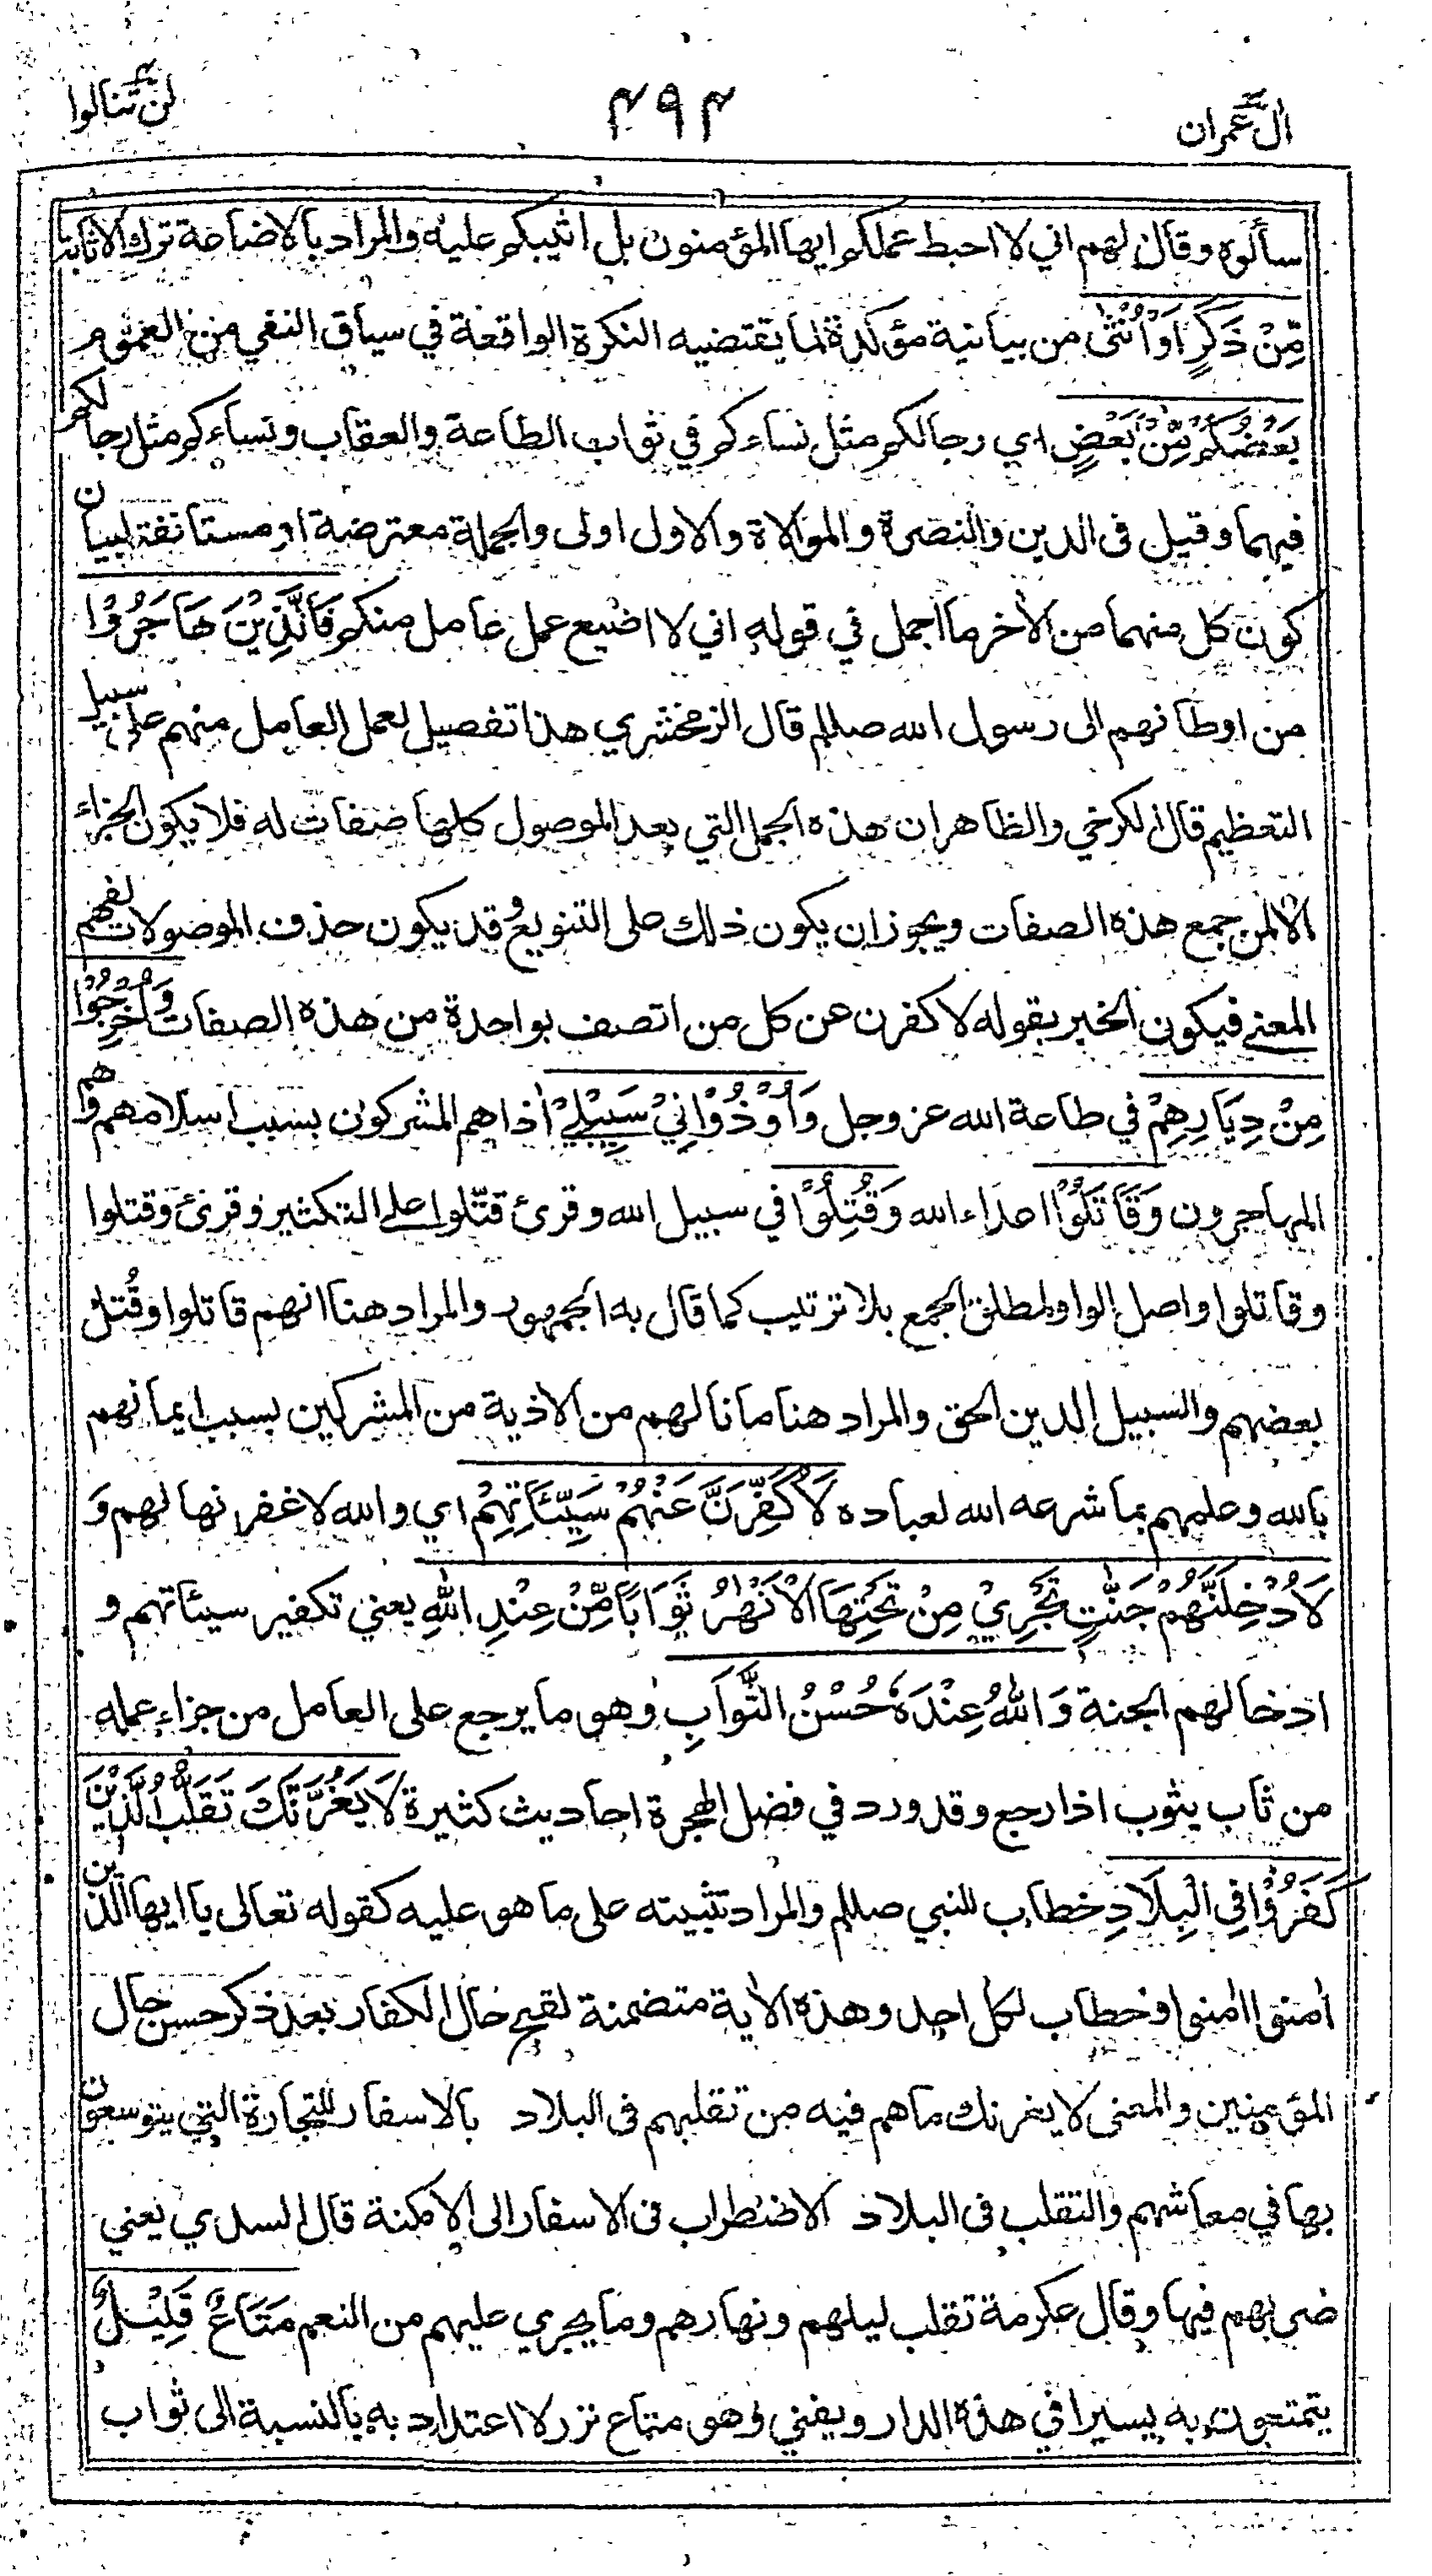 اٰل عمران
٤٩٤
لن تنالوا
سألوه وقال لهم اني لا احبط عملكم ايها المؤمنون بل اثيبكم عليه والمراد بالاضاعة ترك الاثابة
مِّنْ ذَكَرٍ اَوْ اُنْثٰى من بيانية مؤكدة لما يقتضيه النكرة الواقعة في سياق النفي من العموم
بَعْضُكُمْ مِّنْ بَعْضٍ اي رجالكم مثل نساءكم في ثواب الطاعة والعقاب ونساءكم مثل رجالكم
فيهما وقيل فى الدين والنصرة والموالاة والاول اولى والجملة معترضة او مستانفة لبيان
كون كل منهما من الاٰخر ما اجمل في قوله اني لا اضيع عمل عامل منكم فَالَّذِيْنَ هَاجَرُوْا
من اوطانهم الى رسول الله صللم قال الزمخشري هذا تفصيل لعمل العامل منهم على سبيل
التعظيم قال الكرخي والظاهر ان هذه الجمل التي بعد الموصول كلها صفات له فلا يكون الجزاء
الا لمن جمع هذه الصفات ويجوز ان يكون ذلك على التنويع وقد يكون حذف الموصولات لفهم
المعنى فيكون الخبر بقوله لاكفرن عن كل من اتصف بواحدة من هذه الصفات وَاُخْرِجُوْا
مِنْ دِيَارِهِمْ في طاعة الله عز وجل وَاُوْذُوْا فِيْ سَبِيْلِيْ اذاهم المشركون بسبب اسلامهم وهم
المهاجرون وَقَاتَلُوْا اعداء الله وَقُتِلُوْا في سبيل الله وقرئ قتّلوا على التكثير وقرئ وقتلوا
وقاتلوا واصل الواو لمطلق الجمع بلا ترتيب كما قال به الجمهور والمراد هنا انهم قاتلوا وقُتل
بعضهم والسبيل الدين الحق والمراد هنا ما نالهم من الاذية من المشركين بسبب ايمانهم
بالله وعلمهم بما شرعه الله لعباده لَاُكَفِّرَنَّ عَنْهُمْ سَيِّئَاتِهِمْ اي والله لاغفرنها لهم وَ
لَاُدْخِلَنَّهُمْ جَنّٰتٍ تَجْرِيْ مِنْ تَحْتِهَا الْاَنْهٰرُ ثَوَابًا مِّنْ عِنْدِ اللّٰهِ يعني تكفير سيئاتهم و
ادخالهم الجنة وَاللّٰهُ عِنْدَهٗ حُسْنُ الثَّوَابِ وهو ما يرجع على العامل من جزاء عمله
من ثاب يثوب اذا رجع وقد ورد في فضل الهجرة احاديث كثيرة لَا يَغُرَّنَّكَ تَقَلُّبُ الَّذِيْنَ
كَفَرُوْا فِى الْبِلَادِ خطاب للنبي صللم والمراد تثبيته على ما هو عليه كقوله تعالى يا ايها الذين
اٰمنوا اٰمنوا او خطاب لكل احد وهذه الاٰية متضمنة لقبح حال الكفار بعد ذكر حسن حال
المؤمنين والمعنى لا يغرنك ما هم فيه من تقلبهم فى البلاد بالاسفار للتجارة التي يتوسعون
بها في معاشهم والتقلب فى البلاد الاضطراب فى الاسفار الى الامكنة قال السدي يعني
ضربهم فيها وقال عكرمة تقلب ليلهم ونهارهم وما يجري عليهم من النعم مَتَاعٌ قَلِيْلٌ
يتمتعون به يسيرا في هذه الدار ويفني وهو متاع نزر لا اعتداد به بالنسبة الى ثواب